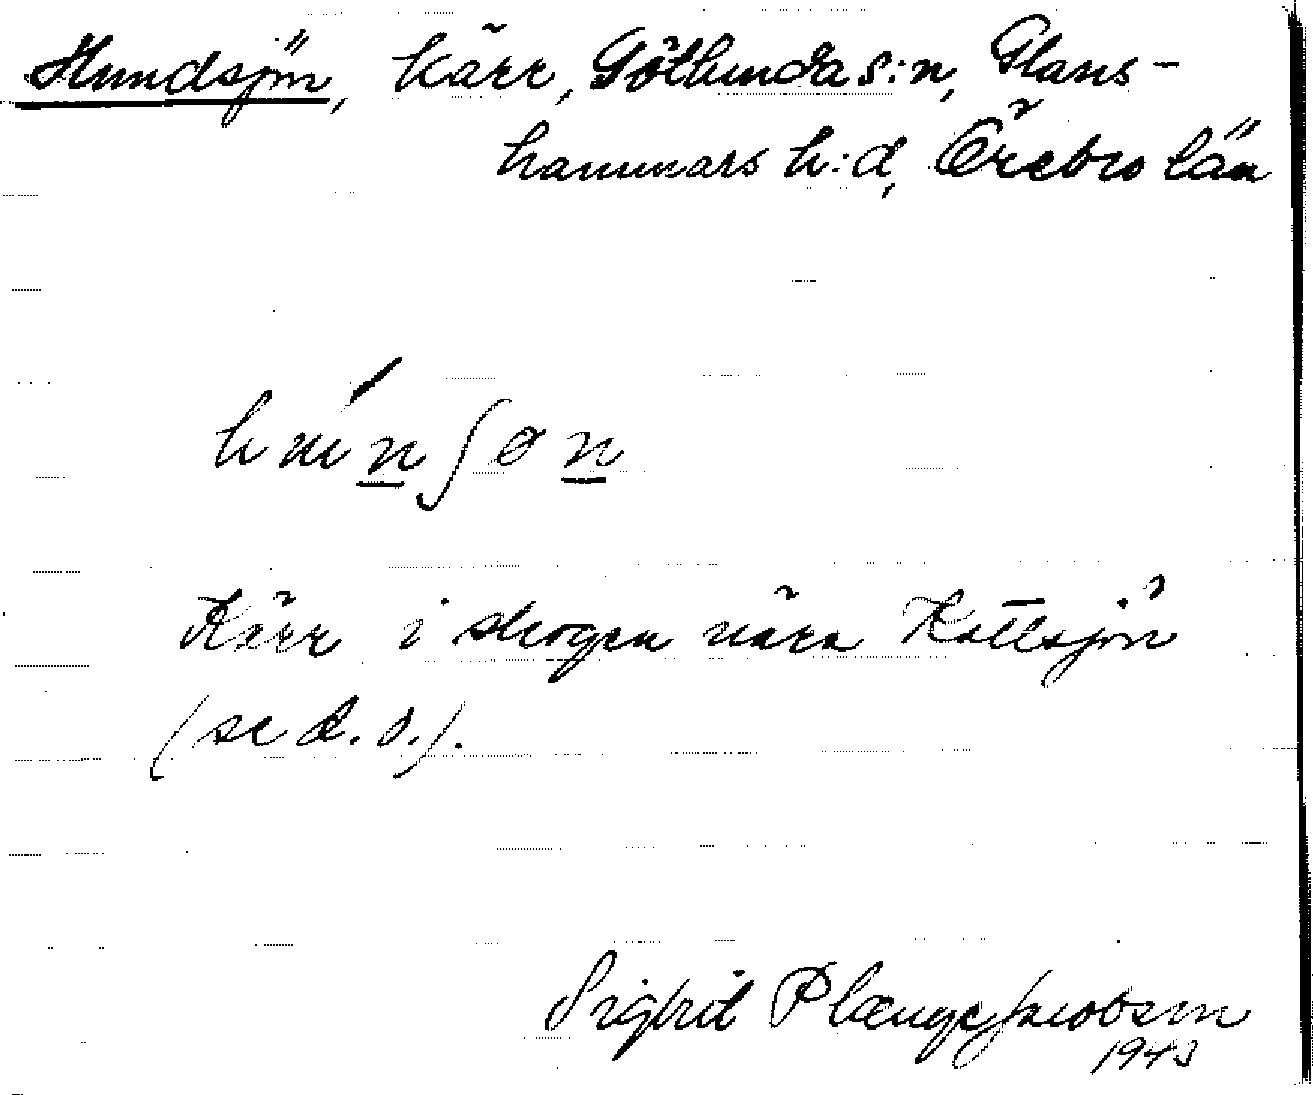 Hundsjön, kärr, Götlunda s:n, Glans-
hammars h:d, Örebro län
Kärr i skogen nära Kottlsjön
(se d. o.).
Sigfrid Plænge Jacobson
1943